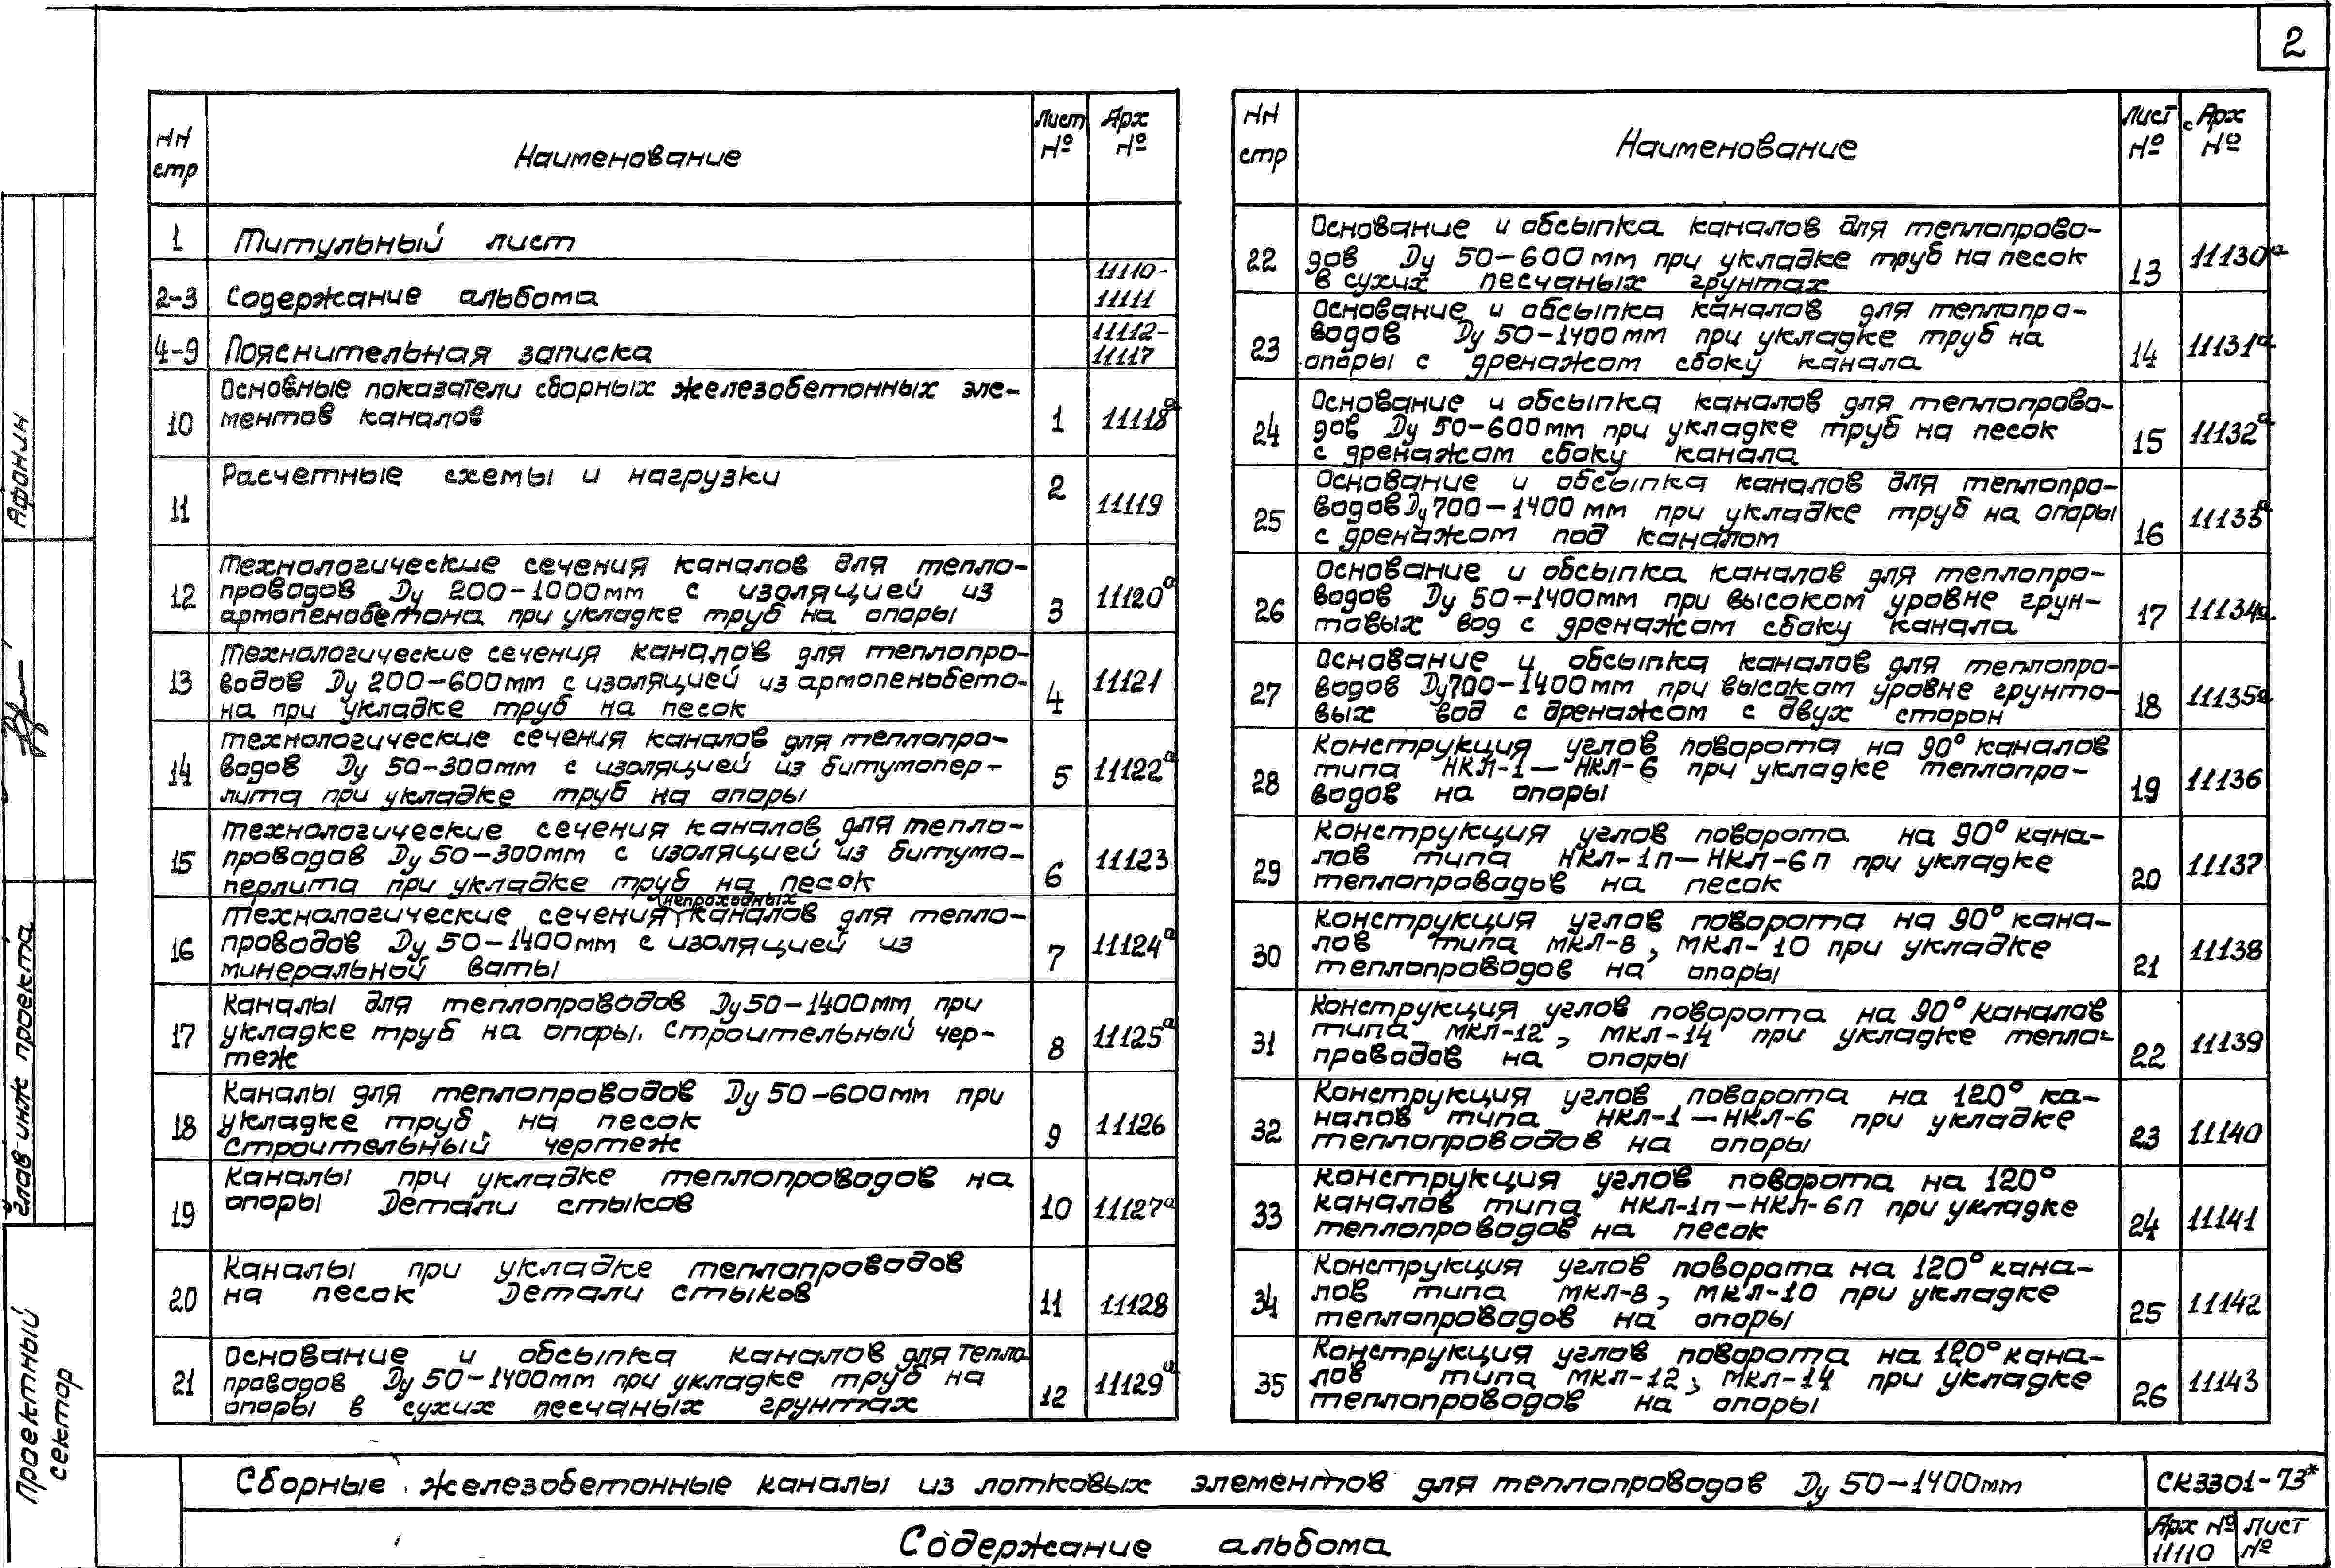 2
НН стр Наименование Лист № Арх №
1 Титульный лист
2-3 Содержание альбома 11110-11111
4-9 Пояснительная записка 11112-11117
10 Основные показатели сборных железобетонных эле-
ментов каналов 1 11118а
11 Расчетные схемы и нагрузки 2 11119
12 Технологические сечения каналов для тепло-
проводов Ду 200-1000мм с изоляцией из
армопенобетона при укладке труб на опоры 3 11120а
13 Технологические сечения каналов для теплопро-
водов Ду 200-600мм с изоляцией из армопенобето-
на при укладке труб на песок 4 11121
14 Технологические сечения каналов для теплопро-
водов Ду 50-300мм с изоляцией из битумопер-
лита при укладке труб на опоры 5 11122а
15 Технологические сечения каналов для тепло-
проводов Ду 50-300мм с изоляцией из битумо-
перлита при укладке труб на песок 6 11123
16 Технологические сечения непроходных каналов для тепло-
проводов Ду 50-1400мм с изоляцией из
минеральной ваты 7 11124а
17 Каналы для теплопроводов Ду 50-1400мм при
укладке труб на опоры. Строительный чер-
теж 8 11125а
18 Каналы для теплопроводов Ду 50-600мм при
укладке труб на песок
Строительный чертеж 9 11126
19 Каналы при укладке теплопроводов на
опоры Детали стыков 10 11127а
20 Каналы при укладке теплопроводов
на песок Детали стыков 11 11128
21 Основание и обсыпка каналов для тепло-
проводов Ду 50-1400мм при укладке труб на
опоры в сухих песчаных грунтах 12 11129а
НН стр Наименование Лист № Арх №
22 Основание и обсыпка каналов для теплопрово-
дов Ду 50-600мм при укладке труб на песок
в сухих песчаных грунтах 13 11130а
23 Основание и обсыпка каналов для теплопро-
водов Ду 50-1400мм при укладке труб на
опоры с дренажом сбоку канала 14 11131а
24 Основание и обсыпка каналов для теплопрово-
дов Ду 50-600мм при укладке труб на песок
с дренажом сбоку канала 15 11132а
25 Основание и обсыпка каналов для теплопро-
водов Ду 700-1400 мм при укладке труб на опоры
с дренажом под каналом 16 11133а
26 Основание и обсыпка каналов для теплопро-
водов Ду 50-1400мм при высоком уровне грун-
товых вод с дренажом сбоку канала 17 11134а
27 Основание и обсыпка каналов для теплопро-
водов Ду 700-1400мм при высоком уровне грунто-
вых вод с дренажом с двух сторон 18 11135а
28 Конструкция углов поворота на 90° каналов
типа НКЛ-1-НКЛ-6 при укладке теплопро-
водов на опоры 19 11136
29 Конструкция углов поворота на 90° кана-
лов типа НКЛ-1п-НКЛ-6п при укладке
теплопроводов на песок 20 11137
30 Конструкция углов поворота на 90° кана-
лов типа МКЛ-8, МКЛ-10 при укладке
теплопроводов на опоры 21 11138
31 Конструкция углов поворота на 90° каналов
типа МКЛ-12, МКЛ-14 при укладке тепло-
проводов на опоры 22 11139
32 Конструкция углов поворота на 120° ка-
налов типа НКЛ-1-НКЛ-6 при укладке
теплопроводов на опоры 23 11140
33 Конструкция углов поворота на 120°
каналов типа НКЛ-1п-НКЛ-6п при укладке
теплопроводов на песок 24 11141
34 Конструкция углов поворота на 120° кана-
лов типа МКЛ-8, МКЛ-10 при укладке
теплопроводов на опоры 25 11142
35 Конструкция углов поворота на 120° кана-
лов типа МКЛ-12, МКЛ-14 при укладке
теплопроводов на опоры 26 11143
Сборные железобетонные каналы из лотковых элементов для теплопроводов Ду 50-1400мм СК3301-73*
Содержание альбома
Арх № 11110
Лист №
Проектный сектор
Глав инж проекта
Афонин